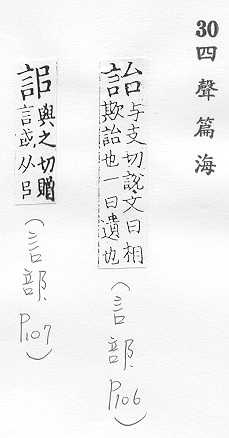 30 四聲篇海
詒 与支切說文曰相
欺詒也一曰遺也
(言部. P106)
與之切贈
言或从吕
(言部. P107)